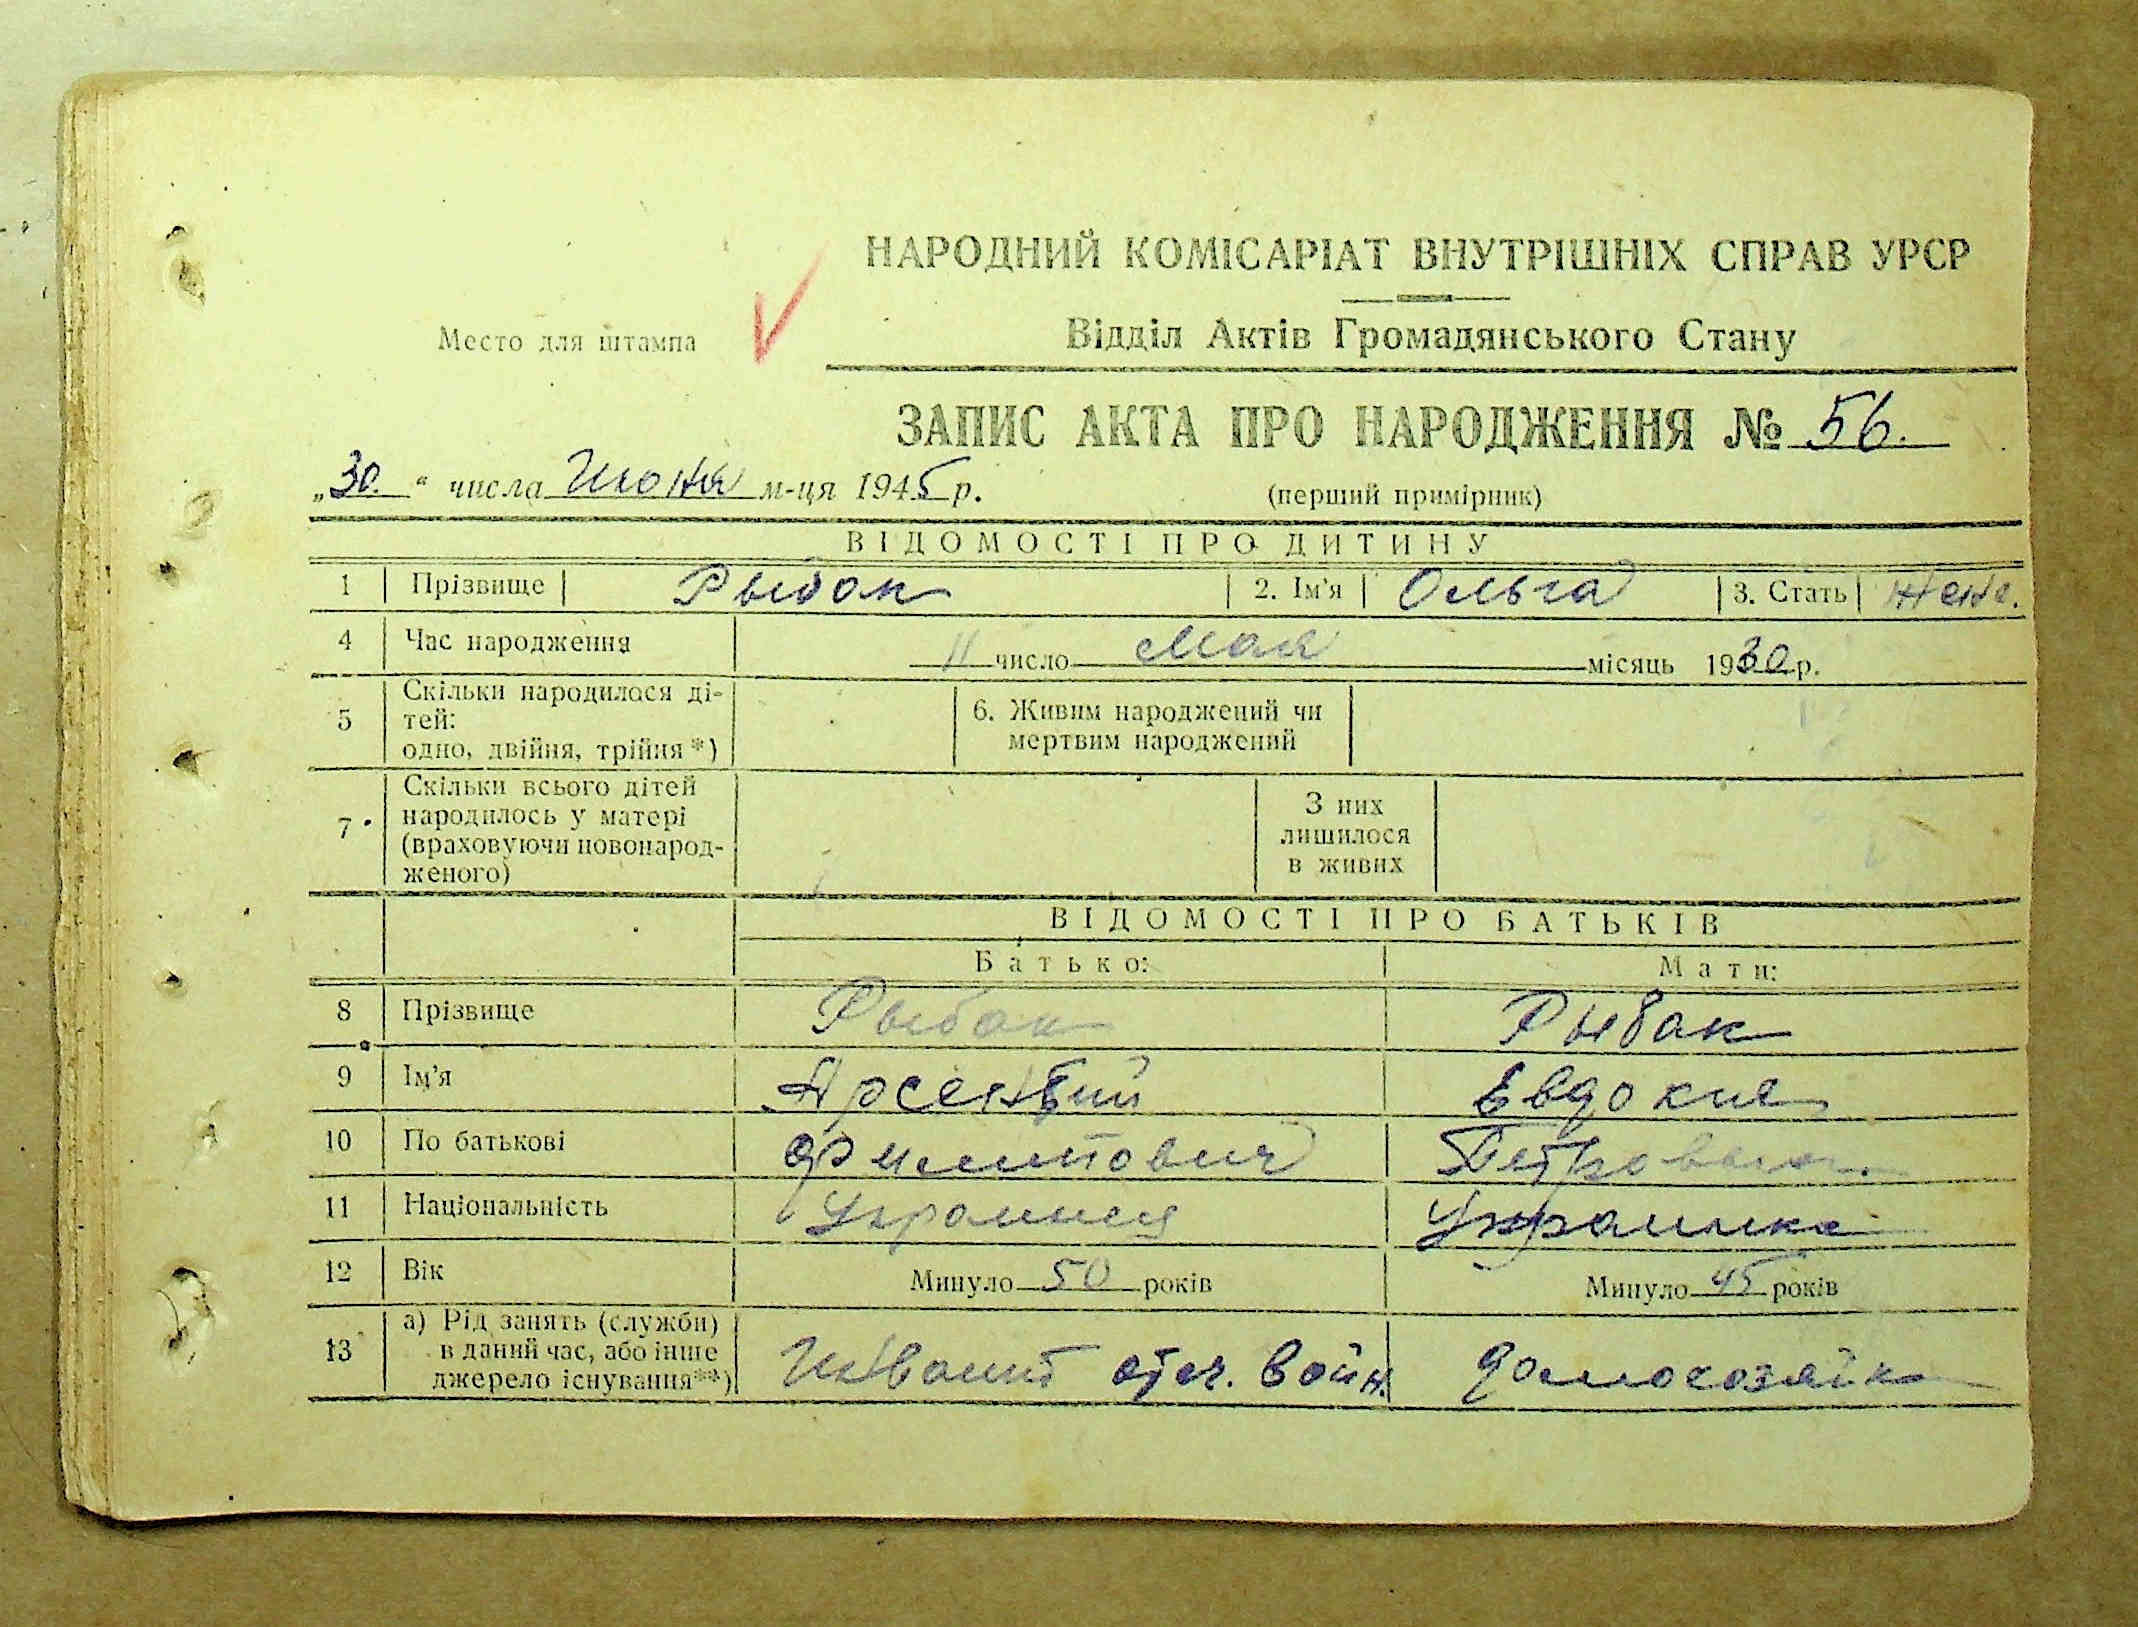 НАРОДНИЙ КОМІСАРІАТ ВНУТРІШНІХ СПРАВ УРСР
Место для штампа
Відділ Актів Громадянського Стану
ЗАПИС АКТА ПРО НАРОДЖЕННЯ № 56.
„30.“ числа Июня м-ця 1945 р.
(перший примірник)
ВІДОМОСТІ ПРО ДИТИНУ
1 Прізвище Рыбак 2. Ім'я Ольга 3. Стать женс.
4 Час народження 11 число Мая місяць 1930 р.
5 Скільки народилося ді-
тей:
одно, двійня, трійня*)
6. Живим народжений чи
мертвим народжений
7 Скільки всього дітей
народилось у матері
(враховуючи новонарод-
женого)
З них
лишилося
в живих
ВІДОМОСТІ ПРО БАТЬКІВ
Батько: Мати:
8 Прізвище Рыбак Рыбак
9 Ім'я Арсентий Евдокия
10 По батькові Филипович Петровна
11 Національність Украинец Украинка
12 Вік Минуло 50 років Минуло 45 років
13 а) Рід занять (служби)
в даний час, або інше
джерело існування**)
отеч. войн. домохозяйк